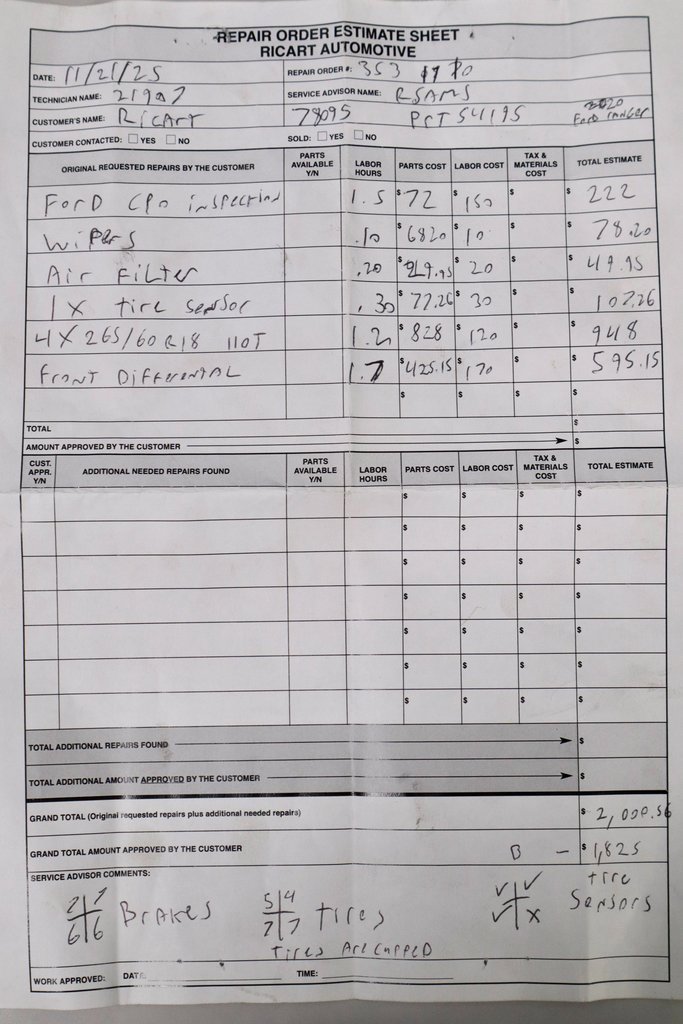 REPAIR ORDER ESTIMATE SHEET
RICART AUTOMOTIVE
DATE: 11/21/25 REPAIR ORDER #: 353
TECHNICIAN NAME: 21907 SERVICE ADVISOR NAME: RSAMS
CUSTOMER'S NAME: RicArt 78095 PCT 54195 2020 Ford ranger
CUSTOMER CONTACTED: ☐ YES ☐ NO SOLD: ☐ YES ☐ NO
ORIGINAL REQUESTED REPAIRS BY THE CUSTOMER PARTS AVAILABLE Y/N LABOR HOURS PARTS COST LABOR COST TAX & MATERIALS COST TOTAL ESTIMATE
Ford CPO inspection 1.5 $72 $150 $ $ 222
WiPers .10 $6820 $10 $ $ 78.20
Air Filter .20 $ $20 $ $ 49.95
1X tire sensor .30 $77.26 $30 $ $ 107.26
4X 265/60R18 110T 1.2 $828 $120 $ $ 948
Front Differental 1.7 $425.15 $170 $ $ 595.15
$ $ $ $
TOTAL $
AMOUNT APPROVED BY THE CUSTOMER $
CUST. APPR. Y/N ADDITIONAL NEEDED REPAIRS FOUND PARTS AVAILABLE Y/N LABOR HOURS PARTS COST LABOR COST TAX & MATERIALS COST TOTAL ESTIMATE
$ $ $ $
$ $ $ $
$ $ $ $
$ $ $ $
$ $ $ $
$ $ $ $
$ $ $ $
TOTAL ADDITIONAL REPAIRS FOUND $
TOTAL ADDITIONAL AMOUNT APPROVED BY THE CUSTOMER $
GRAND TOTAL (Original requested repairs plus additional needed repairs) $ 2,000.56
GRAND TOTAL AMOUNT APPROVED BY THE CUSTOMER – $1,825
SERVICE ADVISOR COMMENTS:
7 7 5 4 ✓ ✓ tire
6 6 Brakes 7 7 tires ✓ X Sensors
Tires Are cupped
WORK APPROVED: DATE: TIME: